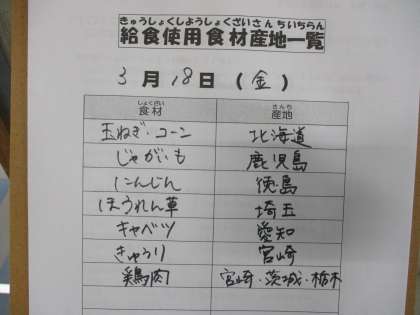 きゅうしょくしようしょくざいさんちいちらん
給食使用食材産地一覧
3月18日(金)
しょくざい さんち
食材 産地
玉ねぎ・コーン 北海道
じゃがいも 鹿児島
にんじん 徳島
ほうれん草 埼玉
キャベツ 愛知
きゅうり 宮崎
鶏肉 宮崎・茨城・栃木